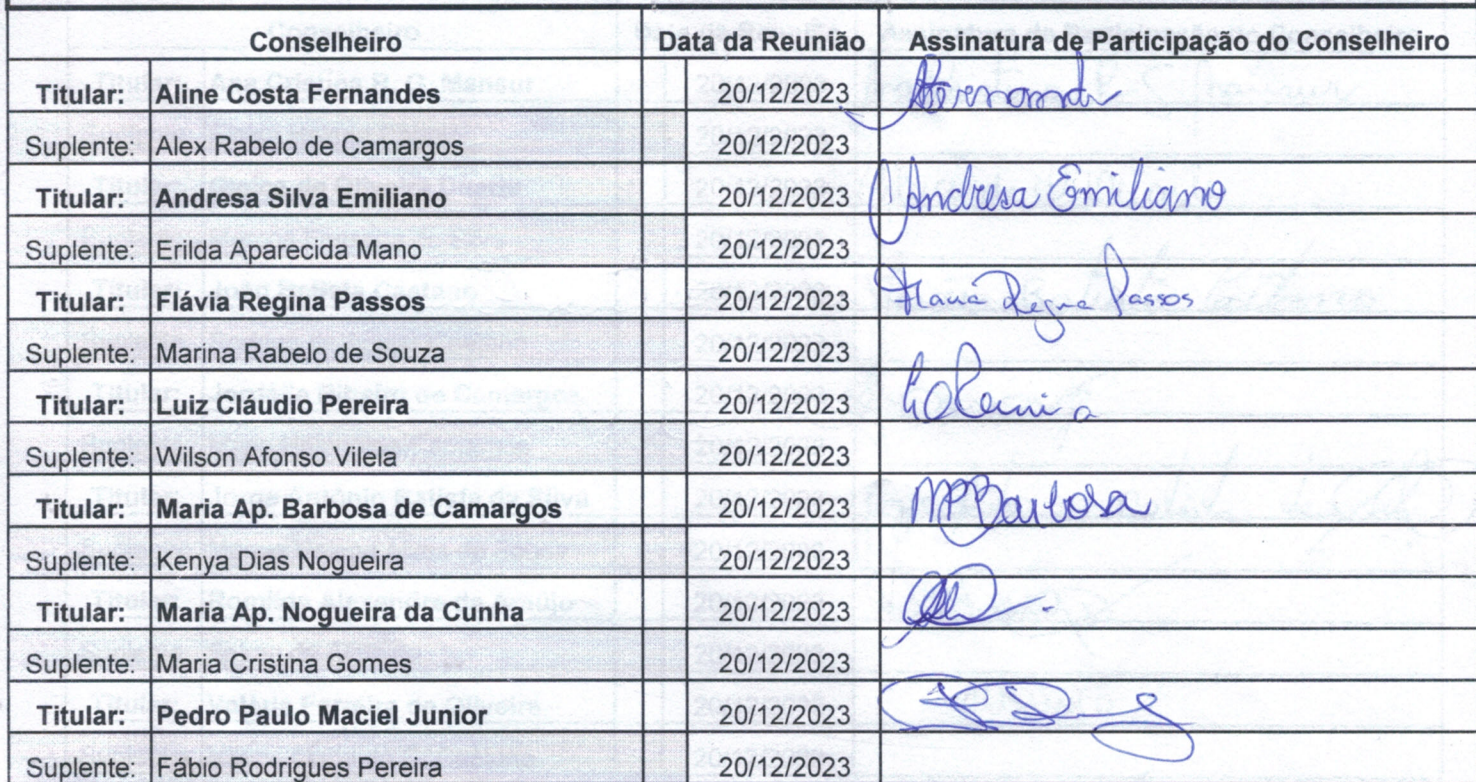 Conselheiro Data da Reunião Assinatura de Participação do Conselheiro
Titular: Aline Costa Fernandes 20/12/2023
Suplente: Alex Rabelo de Camargos 20/12/2023
Titular: Andresa Silva Emiliano 20/12/2023 Andresa Emiliano
Suplente: Erilda Aparecida Mano 20/12/2023
Titular: Flávia Regina Passos 20/12/2023 Flávia Regina Passos
Suplente: Marina Rabelo de Souza 20/12/2023
Titular: Luiz Cláudio Pereira 20/12/2023
Suplente: Wilson Afonso Vilela 20/12/2023
Titular: Maria Ap. Barbosa de Camargos 20/12/2023 MPBarbosa
Suplente: Kenya Dias Nogueira 20/12/2023
Titular: Maria Ap. Nogueira da Cunha 20/12/2023
Suplente: Maria Cristina Gomes 20/12/2023
Titular: Pedro Paulo Maciel Junior 20/12/2023
Suplente: Fábio Rodrigues Pereira 20/12/2023